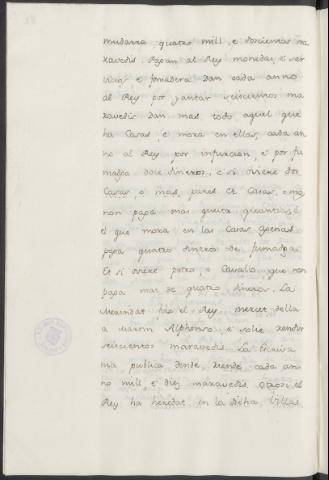 mudarra, quatro mill, e dosçientos ma
ravedis. Pagan al Rey monedas, e ser
viçios, e fonsadera. Dan cada anno
al Rey por yantar seiscientos ma
ravedis Dan mas todo aquel que
ha Casas, e mora en ellas, cada an
no al Rey por infurcion, e por fu
madga doce dineros, e si oviere dos
Casas, o mas, pares de Casas,
non paga mas quita
el que mora en las Casas agenas
paga quatro dineros de fumadga.
Et si oviere potro o Cavallo, que non
paga mas de quatro dineros. La
Merindat fiço el Rey merçet della
a Martin Alphonso, e solie rendir
seiscientos maravedis. La Escriva
nia publica dende, riende cada an
no mill, e diez maravedis. Otrosi el
Rey ha heredat en la dicha Villa